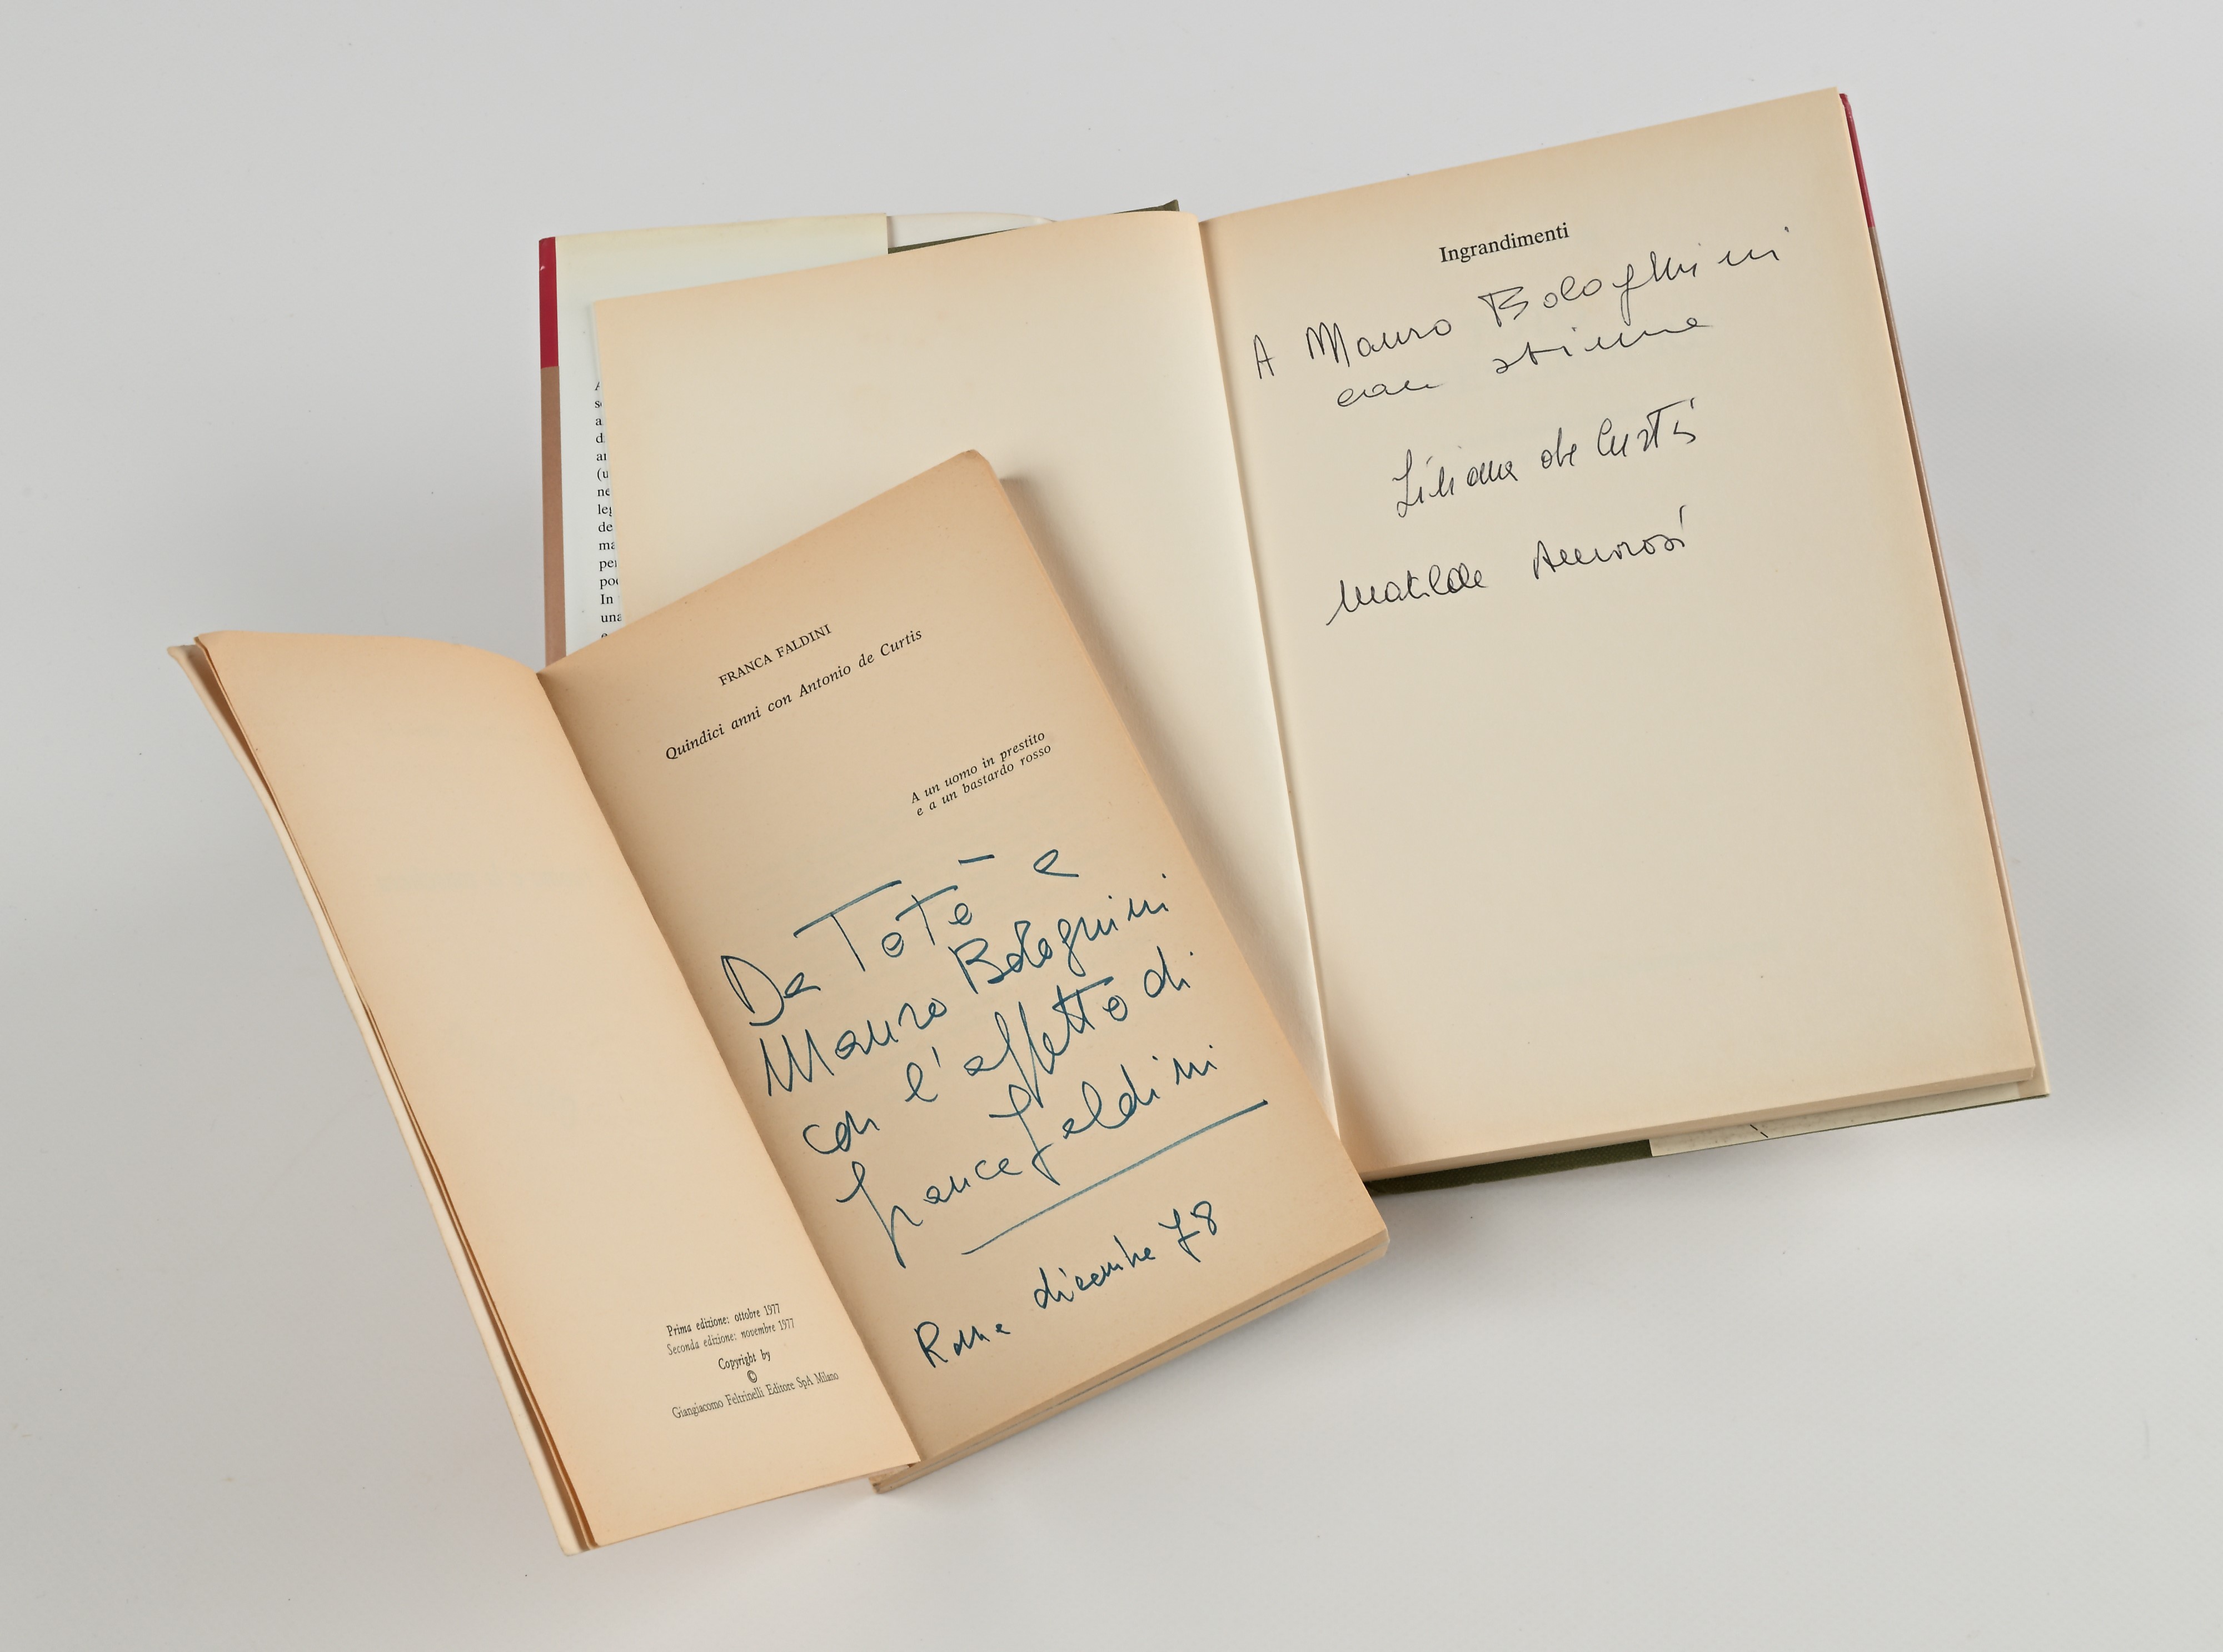 Ingrandimenti
A Mauro Bolognini
con stima
Liliana de Curtis
Matilde Amorosi
FRANCA FALDINI
Quindici anni con Antonio de Curtis
A un uomo in prestito
e a un bastardo rosso
Da Totò a
Mauro Bolognini
con l'affetto di
Franca Faldini
Roma dicembre 78
Prima edizione: ottobre 1977
Seconda edizione: novembre 1977
Copyright by
©
Giangiacomo Feltrinelli Editore SpA Milano